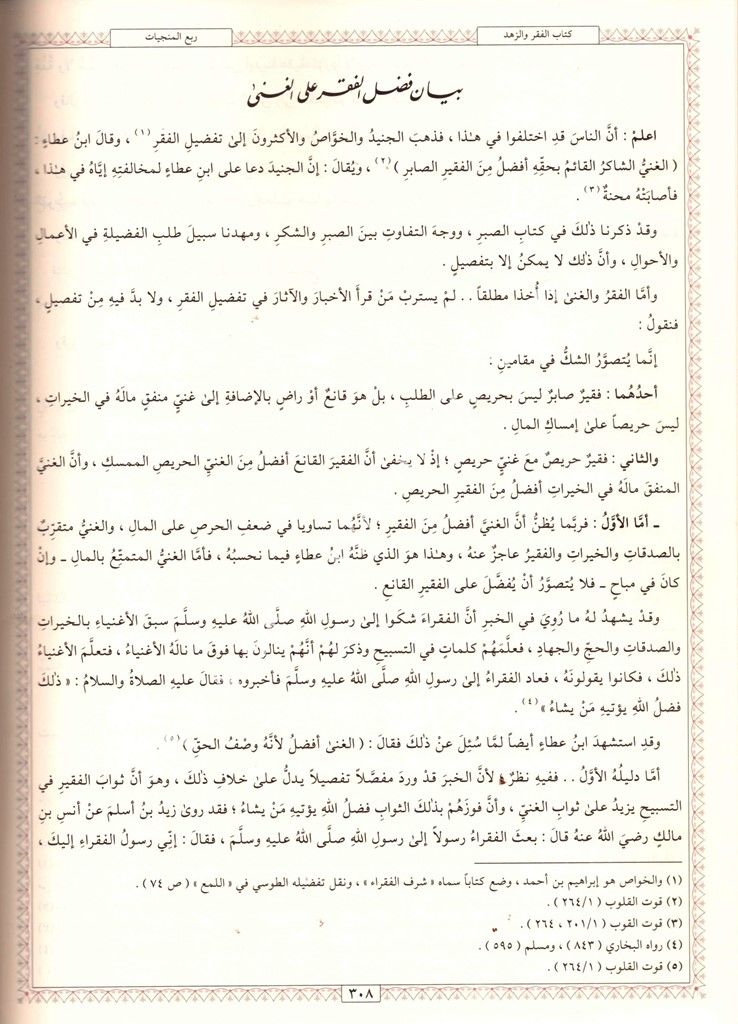 كتاب الفقر والزهد
ربع المنجيات
بيان فضل الفقر على الغنىٰ
اعلمْ : أنَّ الناسَ قدِ اختلفوا في هـٰذا ، فذهبَ الجنيدُ والخوَّاصُ والأكثرونَ إلىٰ تفضيلِ الفقرِ (١) ، وقالَ ابنُ عطاءٍ :
( الغنيُّ الشاكرُ القائمُ بحقِّهِ أفضلُ مِنَ الفقيرِ الصابرِ )(٢) ، ويُقالُ : إنَّ الجنيدَ دعا على ابنِ عطاءٍ لمخالفتِهِ إيَّاهُ في هـٰذا ،
فأصابَتْهُ محنةٌ (٣) .
وقدْ ذكرنا ذٰلكَ في كتابِ الصبرِ ، ووجهَ التفاوتِ بينَ الصبرِ والشكرِ ، ومهدنا سبيلَ طلبِ الفضيلةِ في الأعمالِ
والأحوالِ ، وأنَّ ذٰلك لا يمكنُ إلا بتفصيلٍ .
وأمَّا الفقرُ والغنىٰ إذا أُخذا مطلقاً . . لمْ يستربْ مَنْ قرأَ الأخبارَ والآثارَ في تفضيلِ الفقرِ ، ولا بدَّ فيهِ مِنْ تفصيلٍ ،
فنقولُ :
إنَّما يُتصوَّرُ الشكُّ في مقامينِ :
أحدُهُما : فقيرٌ صابرٌ ليسَ بحريصٍ على الطلبِ ، بلْ هوَ قانعٌ أوْ راضٍ بالإضافةِ إلىٰ غنيٍّ منفقٍ مالَهُ في الخيراتِ ،
ليسَ حريصاً علىٰ إمساكِ المالِ .
والثاني : فقيرٌ حريصٌ معَ غنيٍّ حريصٍ ؛ إذْ لا يخفىٰ أنَّ الفقيرَ القانعَ أفضلُ مِنَ الغنيِّ الحريصِ الممسكِ ، وأنَّ الغنيَّ
المنفقَ مالَهُ في الخيراتِ أفضلُ مِنَ الفقيرِ الحريصِ .
ـ أمَّا الأوَّلُ : فربَّما يُظَنُّ أنَّ الغنيَّ أفضلُ مِنَ الفقيرِ ؛ لأنَّهُما تساويا في ضعفِ الحرصِ على المالِ ، والغنيُّ متقرِّبٌ
بالصدقاتِ والخيراتِ والفقيرُ عاجزٌ عنهُ ، وهـٰذا هوَ الذي ظنَّهُ ابنُ عطاءٍ فيما نحسبُهُ ، فأمَّا الغنيُّ المتمتِّعُ بالمالِ ـ وإنْ
كانَ في مباحٍ ـ فلا يُتصوَّرُ أنْ يُفضَّلَ على الفقيرِ القانعِ .
وقدْ يشهدُ لهُ ما رُوِيَ في الخبرِ أنَّ الفقراءَ شكَوا إلىٰ رسولِ اللهِ صلَّى اللهُ عليهِ وسلَّمَ سبقَ الأغنياءِ بالخيراتِ
والصدقاتِ والحجِّ والجهادِ ، فعلَّمَهُمْ كلماتٍ في التسبيحِ وذكرَ لهُمْ أنَّهُمْ ينالونَ بها فوقَ ما نالَهُ الأغنياءُ ، فتعلَّمَ الأغنياءُ
ذٰلكَ ، فكانوا يقولونَهُ ، فعاد الفقراءُ إلىٰ رسولِ اللهِ صلَّى اللهُ عليهِ وسلَّمَ فأخبروه ، فقالَ عليهِ الصلاةُ والسلامُ : « ذٰلكَ
فضلُ اللهِ يؤتيهِ مَنْ يشاءُ »(٤) .
وقدِ استشهدَ ابنُ عطاءٍ أيضاً لمَّا سُئِلَ عنْ ذٰلكَ فقالَ : ( الغنىٰ أفضلُ لأنَّهُ وصْفُ الحقِّ )(٥) .
أمَّا دليلُهُ الأوَّلُ . . ففيهِ نظرٌ ؛ لأنَّ الخبرَ قدْ وردَ مفصَّلاً تفصيلاً يدلُّ علىٰ خلافِ ذٰلكَ ، وهوَ أنَّ ثوابَ الفقيرِ في
التسبيحِ يزيدُ علىٰ ثوابِ الغنيِّ ، وأنَّ فوزَهُمْ بذٰلكَ الثوابِ فضلُ اللهِ يؤتيهِ مَنْ يشاءُ ؛ فقد روىٰ زيدُ بنُ أسلمَ عنْ أنسِ بنِ
مالكٍ رضيَ اللهُ عنهُ قالَ : بعثَ الفقراءُ رسولاً إلىٰ رسولِ اللهِ صلَّى اللهُ عليهِ وسلَّمَ ، فقالَ : إنِّي رسولُ الفقراءِ إليكَ ،
(١) والخواص هو إبراهيم بن أحمد ، وضع كتاباً سماه « شرف الفقراء » ، ونقل تفضيله الطوسي في « اللمع » ( ص ٧٤ ) .
(٢) قوت القلوب ( ٢٦٤/١ ) .
(٣) قوت القوب ( ٢٠١/١ ، ٢٦٤ ) .
(٤) رواه البخاري ( ٨٤٣ ) ، ومسلم ( ٥٩٥ ) .
(٥) قوت القلوب ( ٢٦٤/١ ) .
٣٠٨